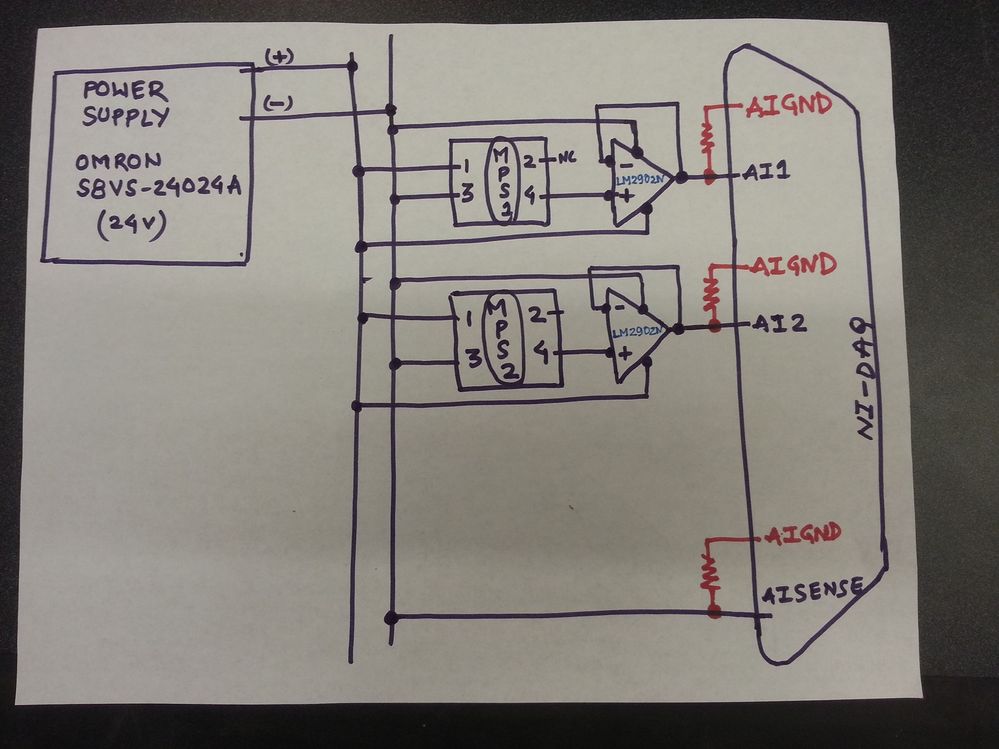 POWER
SUPPLY
OMRON
S8VS-24024A
(24V)
(+)
(-)
1
3
MPS1
2
NC
4
-
+
LM2902N
AIGND
AI1
1
3
MPS2
2
4
-
+
LM2902N
AIGND
AI2
NI-DAQ
AIGND
AISENSE